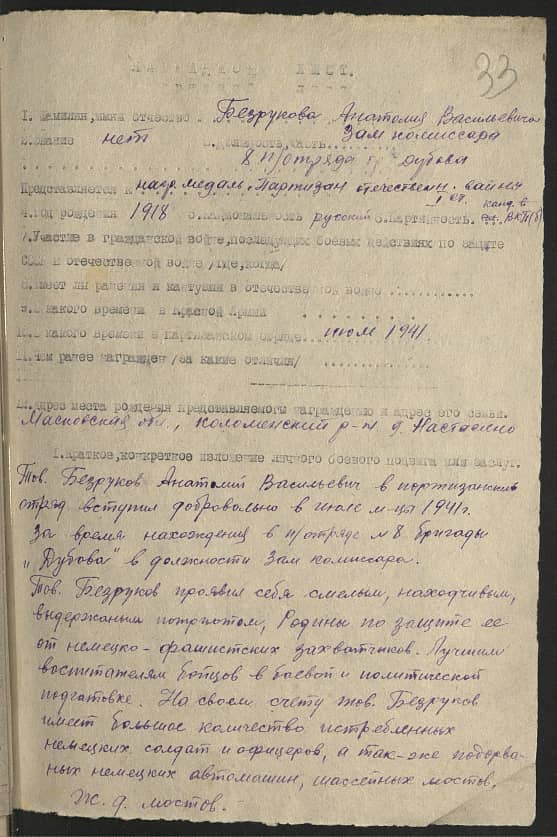 33
НАГРАДНОЙ ЛИСТ.
1. Фамилия, имя отчество . Безрукова Анатолия Васильевича
2. Звание нет 3. Должность, часть Зам комиссара
8 п/отряда бр Дубова
Представляется к нагр. медаль "Партизан отечествен. вайны
I ст. канд. в
4. Год рождения 1918 5. Национальность русский 6. Партийность. ВКП(б)
7. Участие в гражданской войне, последующих боевых действиях по защите
СССР и отечественной войне /где, когда/
8. Имеет ли ранения и контузии в отечественной войне ............
9. С какого времени в Красной Армии . . . . . . . . .
10. С какого времени в партизанском отряде... июль 1941.
11. Чем ранее награжден /за какие отличия/ . . . . . . . . . . .
12. Адрес места рождения представляемого к награждению и адрес его семьи.
Масковская обл., Коломенский р-н д. Настасино
1. Краткое, конкретное изложение личного боевого подвига или заслуг.
Тов. Безруков Анатолий Васильевич в портизанский
отряд вступил добровольно в июле м-цы 1941 г.
За время нахождения в п/отряде № 8 бригады
„Дубова" в должности Зам комиссара.
Тов. Безруков проявил себя смелым, находчивым,
выдержаным потриотом, Родины по защите ее
от немецко-фашистских захватчиков. Лучшим
воспитателям бойцов в боевой и политической
подготовке. На своем счету тов. Безруков
имеет большое количество истребленных
немецких солдат и офицеров, а так-же подорва-
ных немецких автомашин, шассейных мостов,
ж. д. мостов.